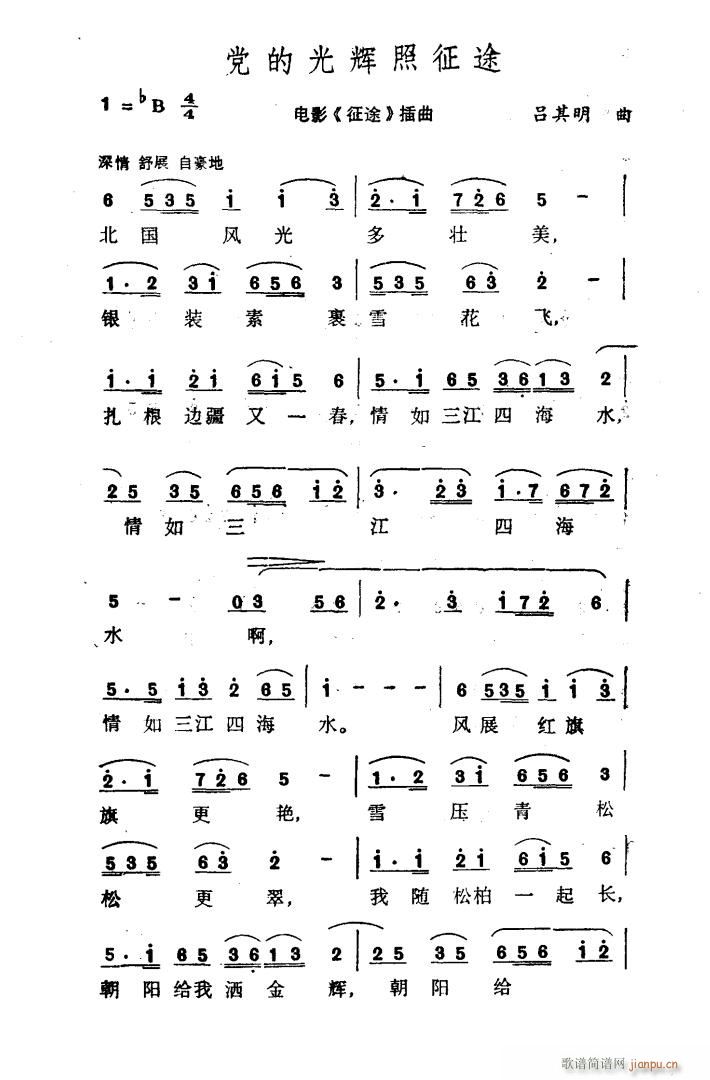 党的光辉照征途
1=♭B 4/4
电影《征途》插曲 吕其明 曲
深情 舒展 自豪地
6 535 i i 3 | 2·i 726 5 - |
北国 风光 多 壮 美,
1·2 3i 656 3 | 535 63 2 - |
银 装素 裹雪 花 飞,
i·i 2i 6i5 6 | 5·i 65 36 13 2
扎根边疆又一春,情如三江四海水,
25 35 656 i2 | 3· 23 i·7 672 |
情如三 江 四 海
5 - 03 56 | 2· 3 i72 6 |
水 啊,
5·5 i3 2 65 | i - - - | 6 535 i i3 |
情如三江四海 水。 风展 红旗
2·i 726 5 - | 1·2 3i 656 3 |
旗 更 艳, 雪 压青 松
535 63 2 - | i·i 2i 6i5 6 |
松 更 翠, 我随松柏一起长,
5·i 65 36 13 2 | 25 35 656 i2 |
朝阳给我洒金 辉,朝阳 给
歌谱简谱网
jianpu.cn